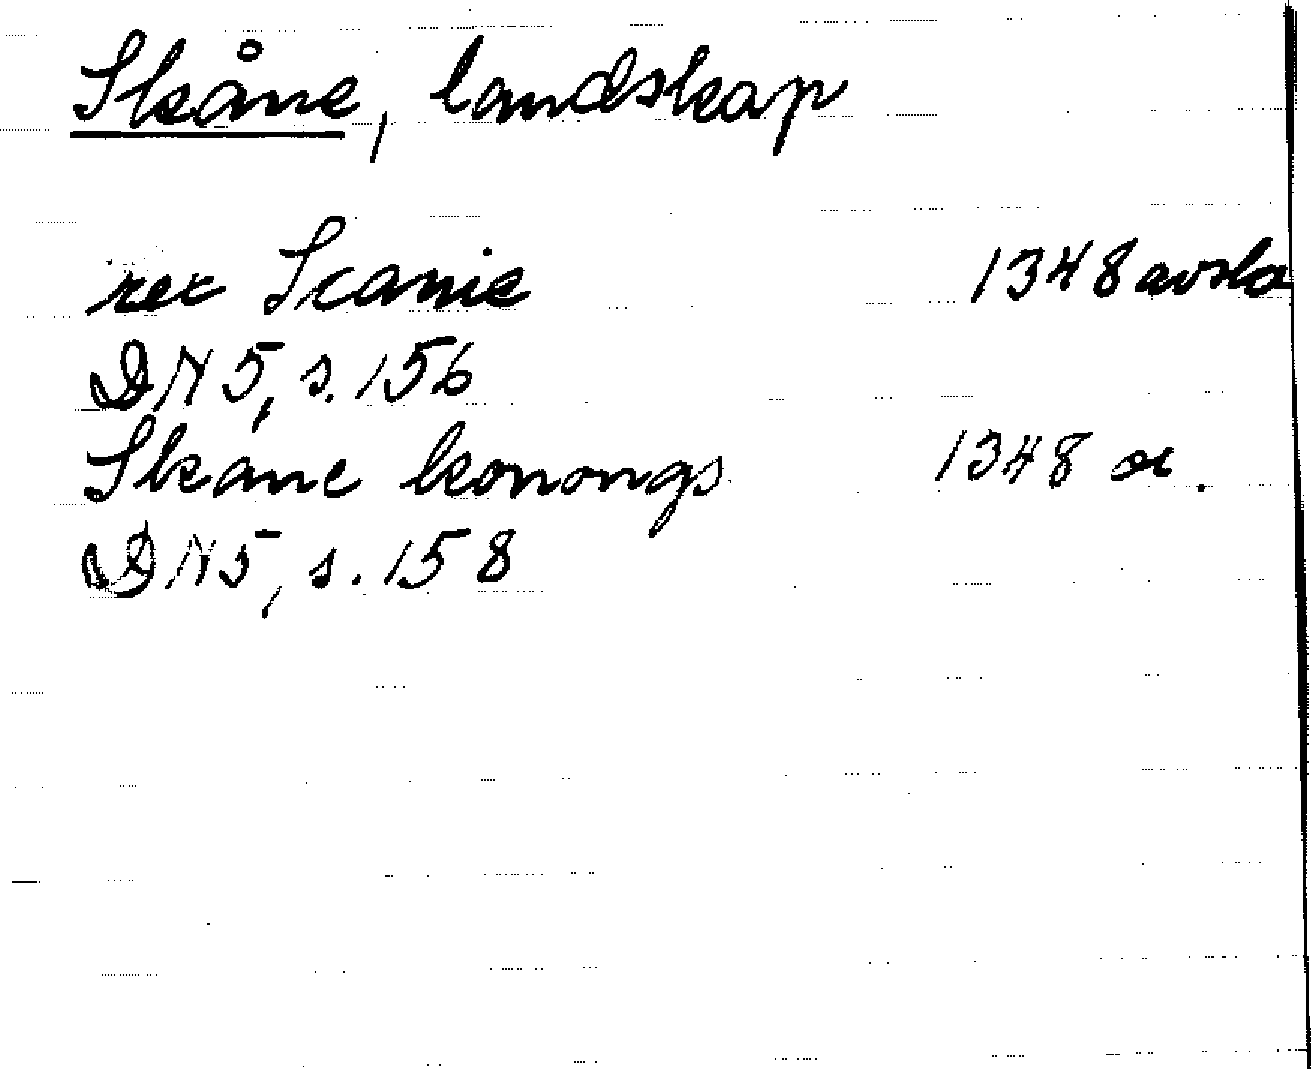 Skåne, landskap
rex Scanie 1348 avskr
DN 5, s. 156
Skane konongs 1348 or.
DN 5, s. 158